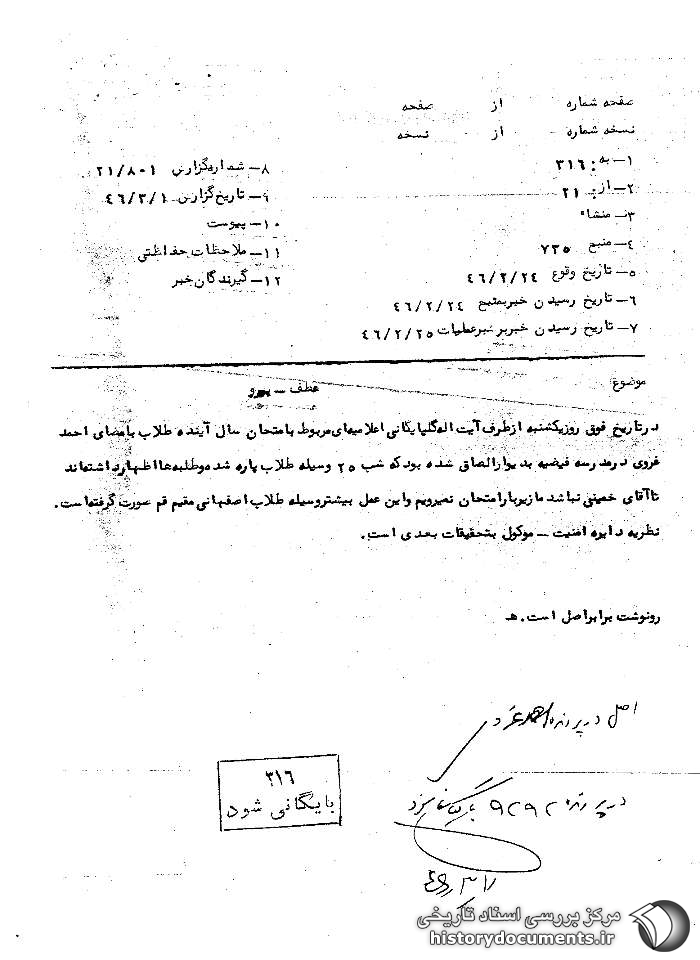 صفحه شماره از صفحه
نسخه شماره از نسخه
۱- به: ۳۱۶
۲- از: ۲۱
۳- منشاء
۴- منبع ۷۳۵
۵- تاریخ وقوع ۴۶/۲/۲۴
۶- تاریخ رسیدن خبر بمنبع ۴۶/۲/۲۴
۷- تاریخ رسیدن خبر برهبر عملیات ۴۶/۲/۲۵
۸- شماره گزارش ۲۱/۸۰۱
۹- تاریخ گزارش ۴۶/۳/۱
۱۰- پیوست
۱۱- ملاحظات حفاظتی
۱۲- گیرندگان خبر
موضوع
عطف - پیرو
در تاریخ فوق روز یکشنبه از طرف آیت اله گلپایگانی اعلامیه‌ای مربوط بامتحان سال آینده طلاب بامضای احمد
غروی در مدرسه فیضیه بدیوار الصاق شده بود که شب ۲۵ وسیله طلاب پاره شد و طلبه‌ها اظهار داشته‌اند
تا آقای خمینی نباشد ما زیر بار امتحان نمیرویم و این عمل بیشتر وسیله طلاب اصفهانی مقیم قم صورت گرفته است.
نظریه دایره امنیت - موکول بتحقیقات بعدی است.
رونوشت برابر اصل است. هـ
اصل در پرونده احمد
در پرونده ۹۲۹۲ بایگانی
۳۱۶
بایگانی شود
مرکز بررسی اسناد تاریخی
historydocuments.ir